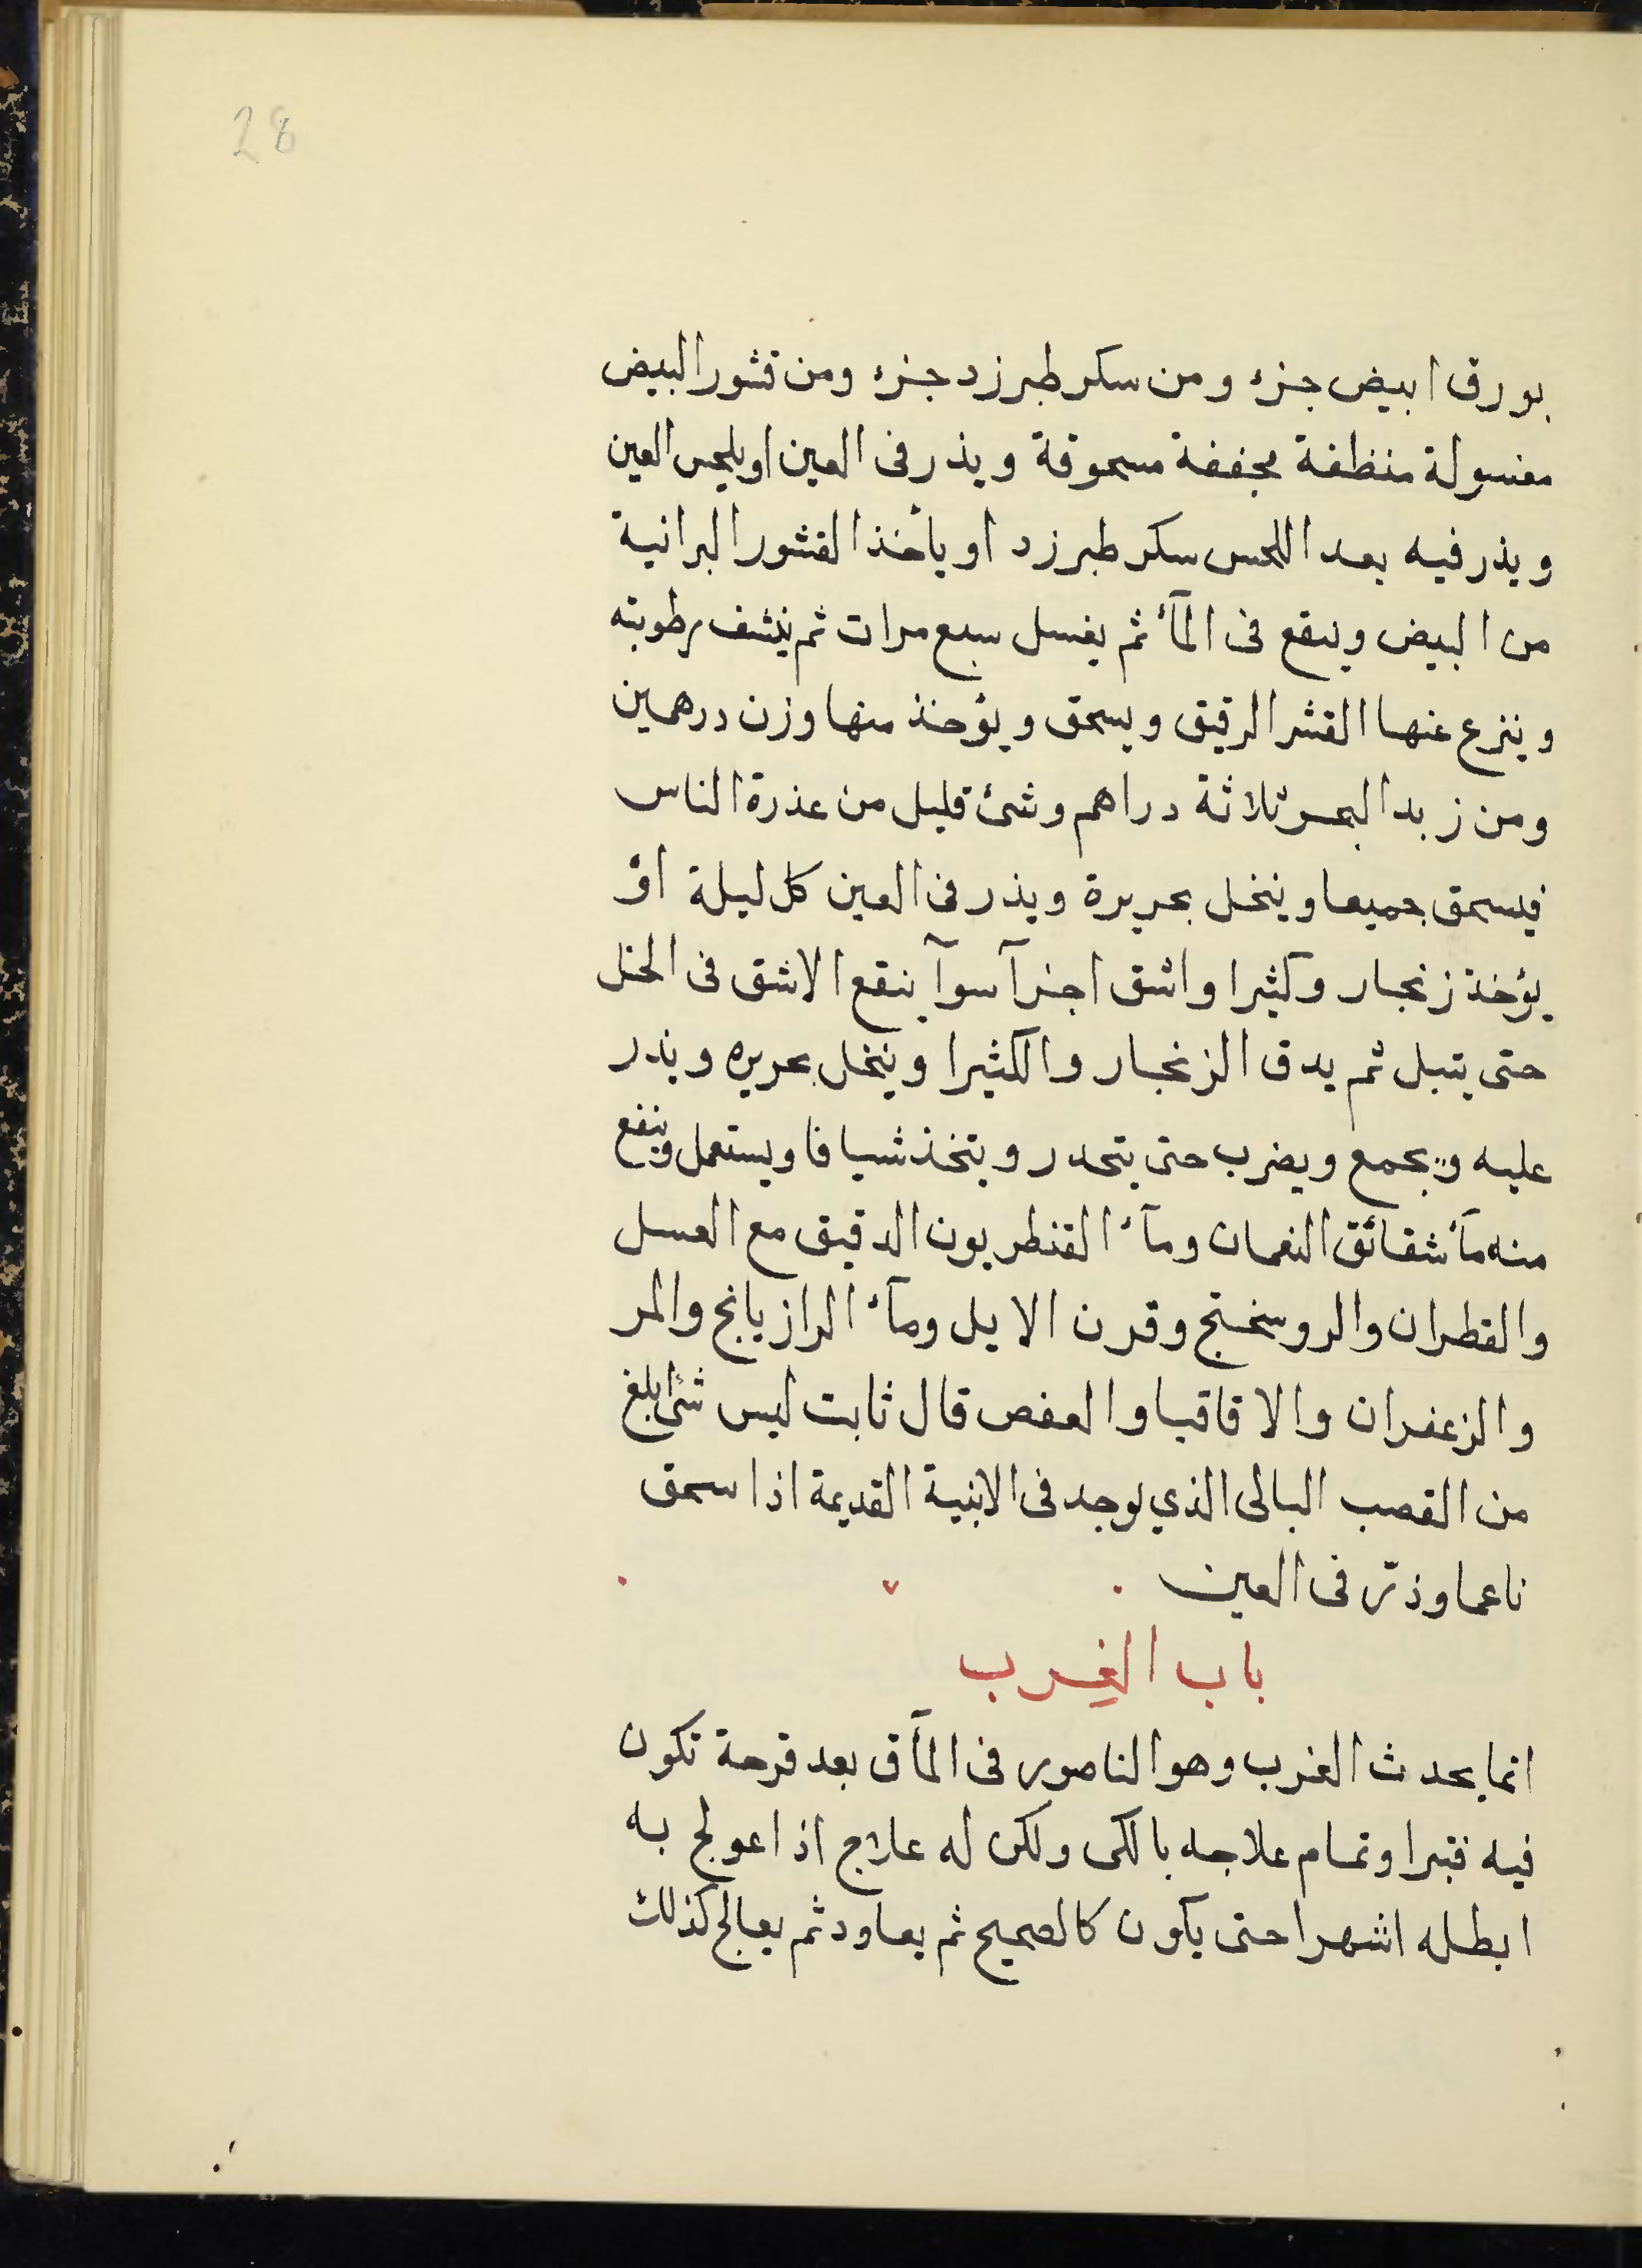 28
بورق ابيض جزء ومن سكر طبرزد جزء ومن قشور البيض
مغسولة منظفة مجففة مسحوقة ويذر فى العين او يلحس العين
ويذر فيه بعد اللحس سكر طبرزد او يأخذ القشور البرانية
من البيض وينقع فى المآء ثم يغسل سبع مرات ثم ينشف رطوبته
وينزع عنها القشر الرقيق ويسحق ويؤخذ منها وزن درهمين
ومن زبد البحر ثلاثة دراهم وشئ قليل من عذرة الناس
فيسحق جميعا وينخل بحريرة ويذر فى العين كل ليلة اؤ
يؤخذ زنجار وكثيرا واشق اجزآ سوآ ينقع الاشق فى الخل
حتى يتبل ثم يدق الزنجار والكثيرا وينخل بحريره ويذر
عليه ويجمع ويضرب حتى يتحدر ويتخذ شيافا ويستعمل وينفع
منه مآء شقائق النعمان ومآء القنطريون الدقيق مع العسل
والقطران والروسختج وقرن الايل ومآء الرازيانج والمر
والزعفران والاقاقيا والعفص قال ثابت ليس شئ ابلغ
من القصب البالى الذي يوجد فى الابنية القديمة اذا سحق
ناعما وذرّ فى العين
باب الغرب
انما يحدث الغرب وهو الناصور فى المآق بعد قرحة تكون
فيه فتبرا وتمام علاجه بالكى ولكن له علاج اذا عولج به
ابطله اشهرا حتى يكون كالصحيح ثم يعاود ثم يعالج كذلك